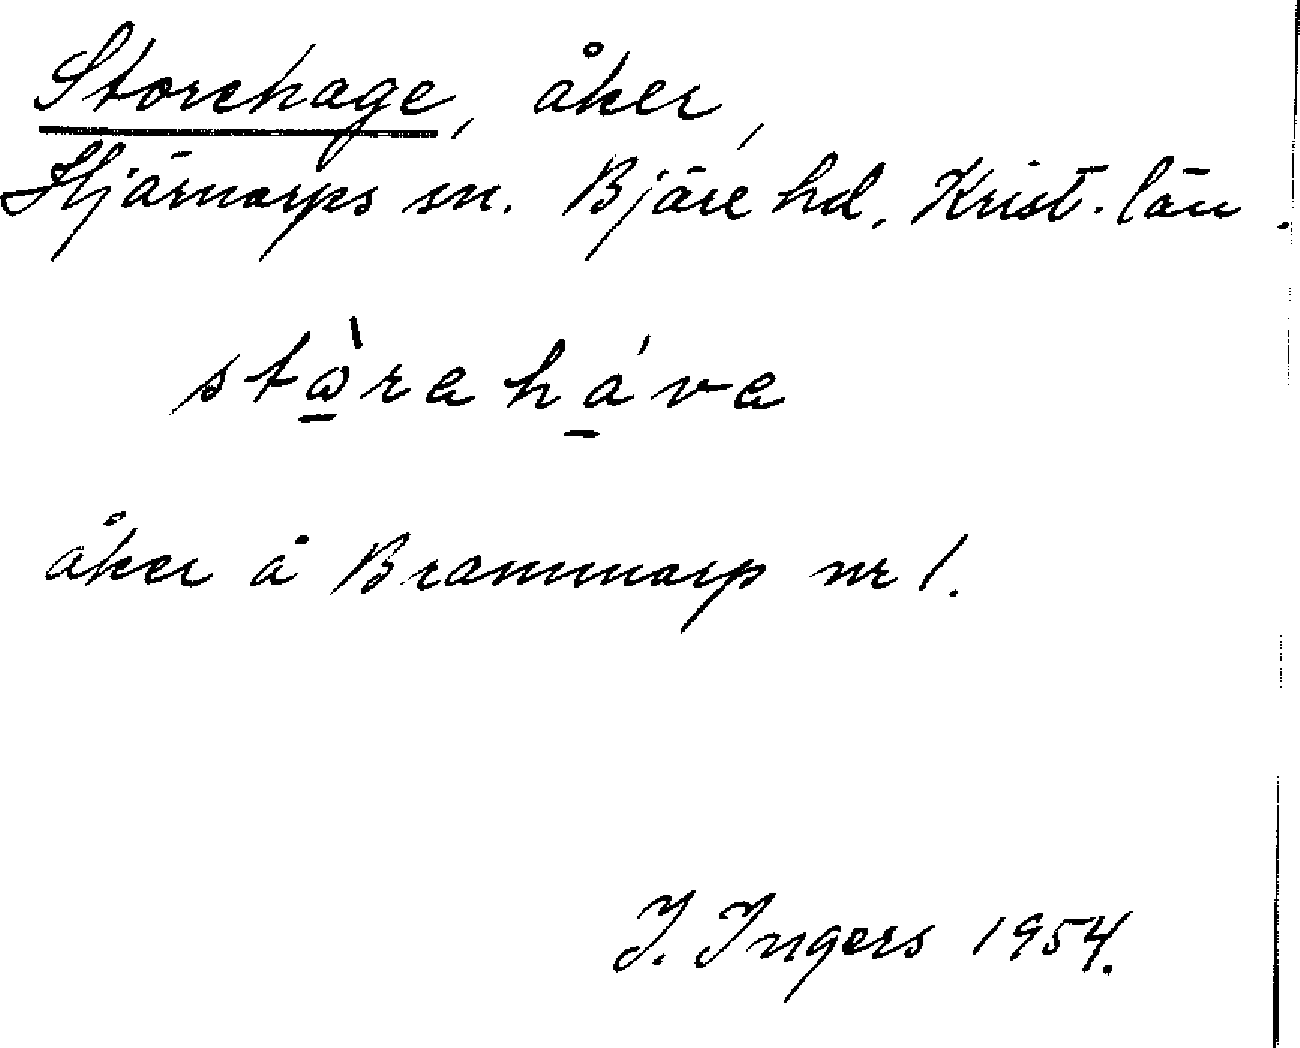 Storehage, åker,
Hjärnarps sn. Bjäre hd. Krist. län.
stὼ̲rahá̲va
åker å Brammarp nr 1.
I. Ingers 1954.